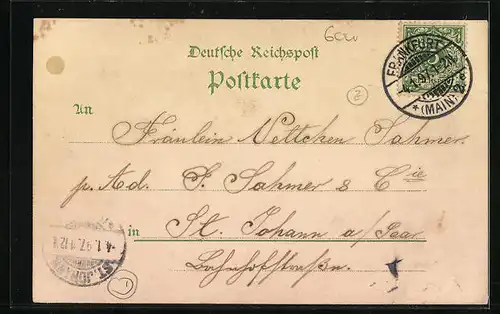 Deutsche Reichspost
Postkarte
FRANKFURT
*(MAIN)
An
Fräulein Nettchen Sahmer
p. Ad. S. Sahmer & Cie
in St. Johann a/Saar
Bahnhofstraße.
4.1.97
ST. JOHANN